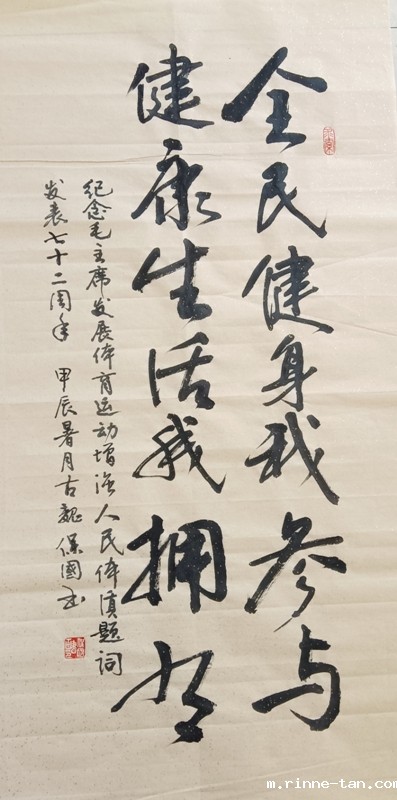 全民健身我参与
健康生活我拥有
纪念毛主席发展体育运动增强人民体质题词
发表七十二周年 甲辰暑月古魏保国书
m.rinne-tan.com